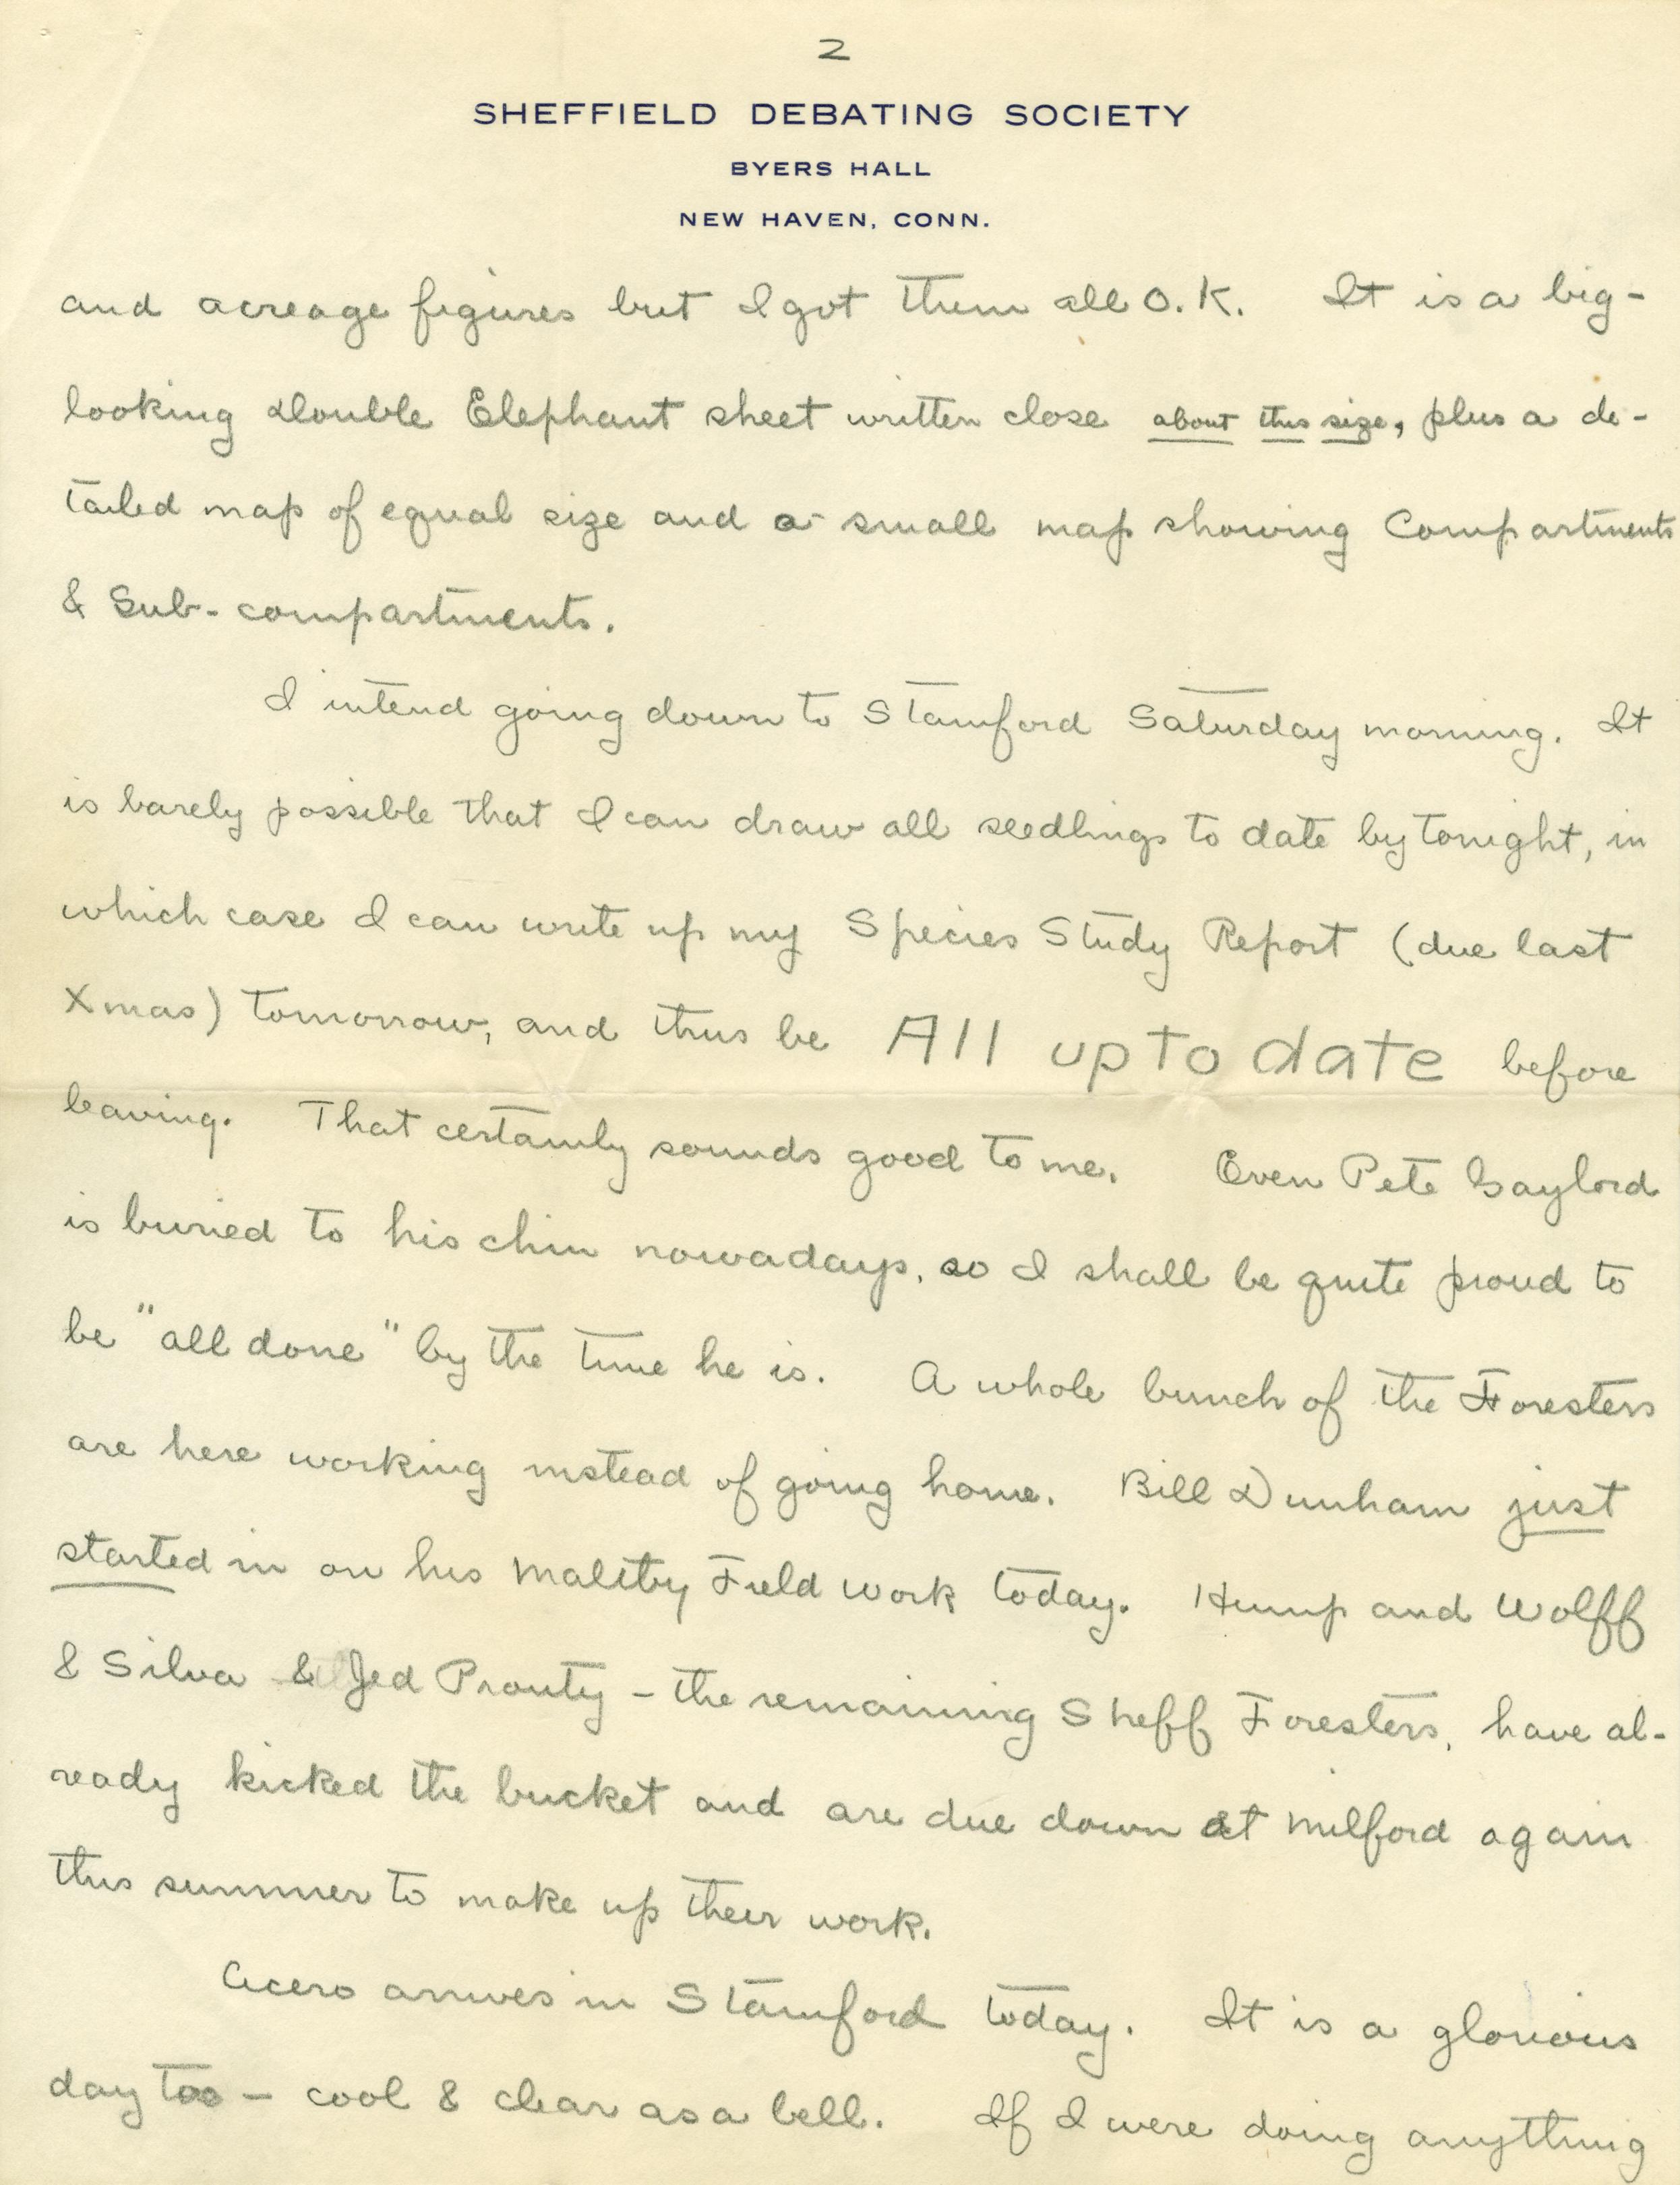 2
SHEFFIELD DEBATING SOCIETY
BYERS HALL
NEW HAVEN, CONN.
and acreage figures but I got them all O.K. It is a big-
looking Double Elephant sheet written close about this size, plus a de-
tailed map of equal size and a small map showing Compartments
& Sub-compartments.
I intend going down to Stamford Saturday morning. It
is barely possible that I can draw all seedlings to date by tonight, in
which case I can write up my Species Study Report (due last
Xmas) tomorrow, and thus be All up to date before
leaving. That certainly sounds good to me. Even Pete Gaylord
is buried to his chin nowadays, so I shall be quite proud to
be "all done" by the time he is. A whole bunch of the Foresters
are here working instead of going home. Bill Dunham just
started in on his Maltby Field Work today. Hump and Wolff
& Silva & Jed Prouty - the remaining Sheff Foresters, have al-
ready kicked the bucket and are due down at Milford again
this summer to make up their work.
Cicero arrives in Stamford today. It is a glorious
day too - cool & clear as a bell. If I were doing anything